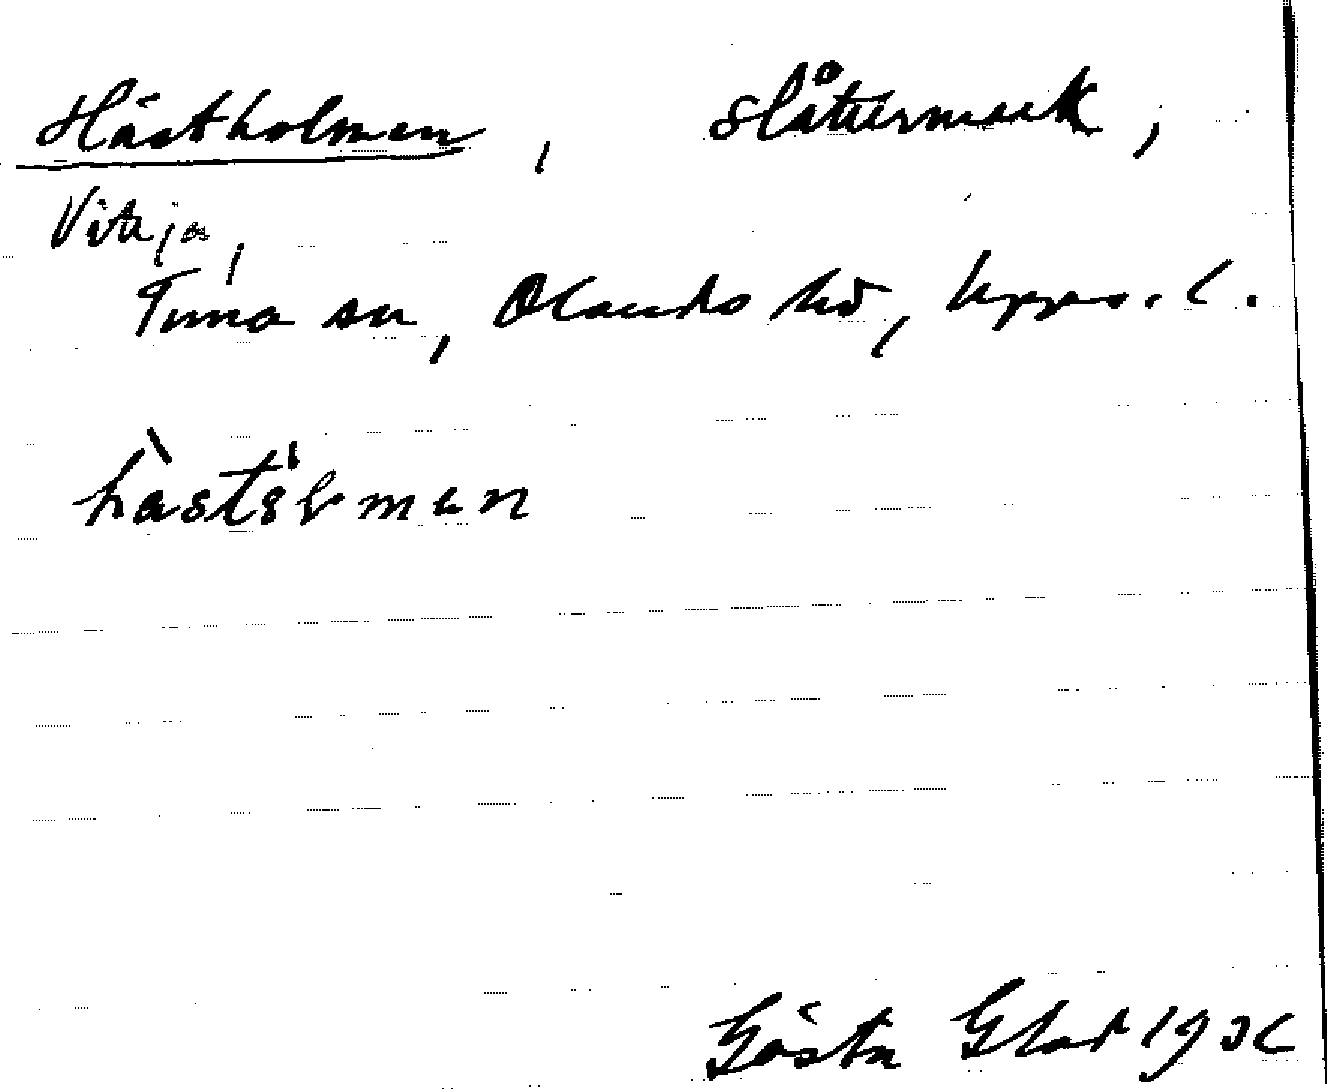 Hästholmen, slåttermark,
Vitsja,
Tuna sn, Olands hd, Upps. l.
hàstàlmen
Gösta Glad 1936